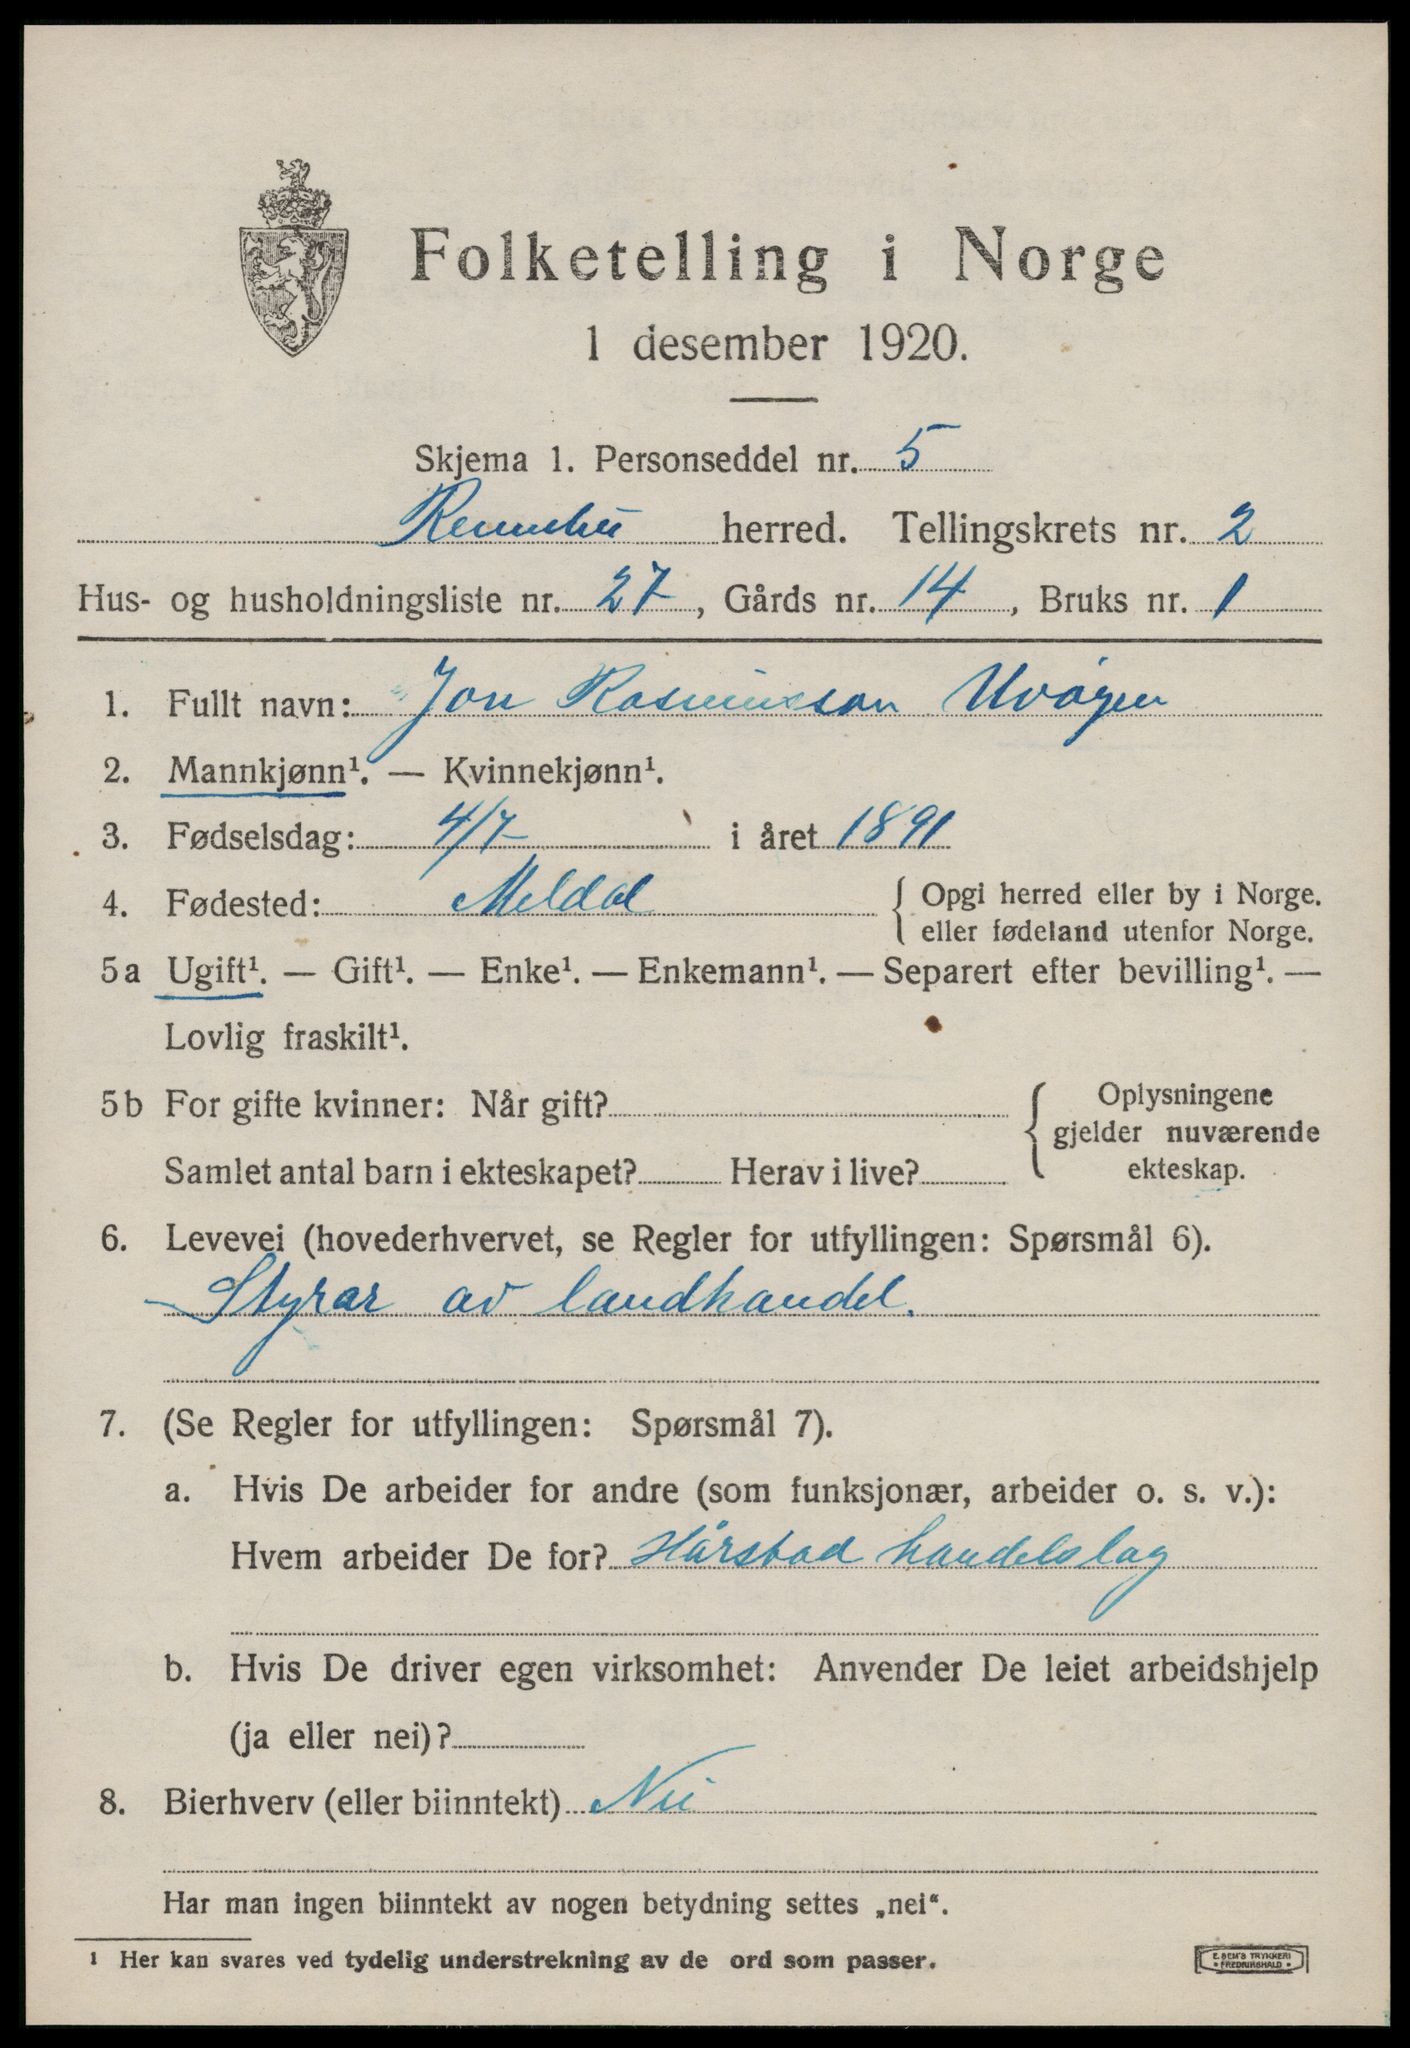 Folketelling i Norge
1 desember 1920.
Skjema 1. Personseddel nr. 5
Rennebu herred. Tellingskrets nr. 2
Hus- og husholdningsliste nr. 27, Gårds nr. 14, Bruks nr. 1
1. Fullt navn: Jon Rasmusson
2. Mannkjønn¹. — Kvinnekjønn¹.
3. Fødselsdag: 4/7 i året 1891
4. Fødested: Meldal { Opgi herred eller by i Norge.
eller fødeland utenfor Norge.
5a Ugift¹. — Gift¹. — Enke¹. — Enkemann¹. — Separert efter bevilling¹. —
Lovlig fraskilt¹.
5b For gifte kvinner: Når gift?
Samlet antal barn i ekteskapet? Herav i live?
Oplysningene
gjelder nuværende
ekteskap.
6. Levevei (hovederhvervet, se Regler for utfyllingen: Spørsmål 6).
Styrar av landhandel.
7. (Se Regler for utfyllingen: Spørsmål 7).
a. Hvis De arbeider for andre (som funksjonær, arbeider o. s. v.):
Hvem arbeider De for? Hårstad handelslag
b. Hvis De driver egen virksomhet: Anvender De leiet arbeidshjelp
(ja eller nei)?
8. Bierhverv (eller biinntekt) Nei
Har man ingen biinntekt av nogen betydning settes „nei“.
1 Her kan svares ved tydelig understrekning av de ord som passer.
E. SEM'S TRYKKERI
• FREDRIKSHALD •